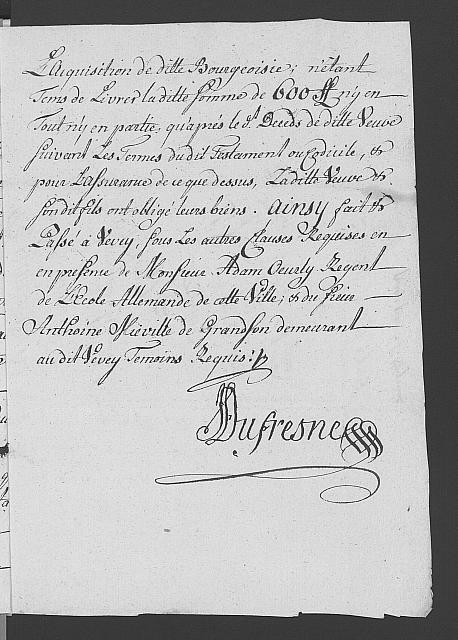 L'aquisition de ditte Bourgeoisie; n'etant
Tems de Livrer la ditte somme de 600 ff ny en
Tout n'y en partie, qu'aprés le d.t Deceds de ditte Veuve
suivant Les Termes du dit Testament ou Codicile, &
pour L'assurance de ce que dessus, La ditte Veuve &
son dit fils ont obligé leurs biens. ainsy fait &
Passé à Vevey, sous Les autres Clauses Requises en
en presence de Monsieur Adam Oeurly Regent
de L'Ecole Allemande de cette Ville; & du sieur
Anthoine Miéville de Grandson demeurant
au dit Vevey Temoins Requis:
Dufresne